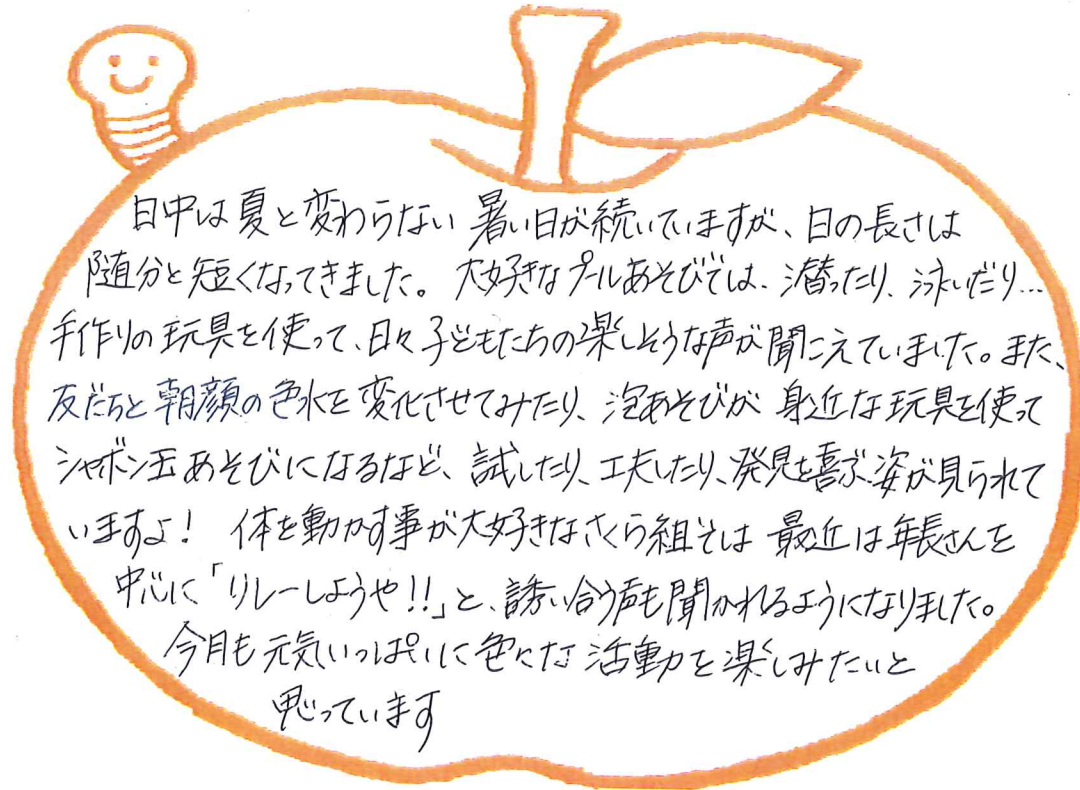 日中は夏と変わらない 暑い日が続いていますが、日の長さは
随分と短くなってきました。 大好きなプールあそびでは、潜ったり、泳いだり…
手作りの玩具を使って、日々子どもたちの楽しそうな声が聞こえていました。また、
友だちと朝顔の色水を変化させてみたり、泡あそびが 身近な玩具を使って
シャボン玉あそびになるなど、試したり、工夫したり、発見を喜ぶ姿が見られて
いますよ! 体を動かす事が大好きなさくら組では 最近は年長さんを
中心に「リレーしようや!!」と、誘い合う声も聞かれるようになりました。
今月も元気いっぱいに色々な活動を楽しみたいと
思っています